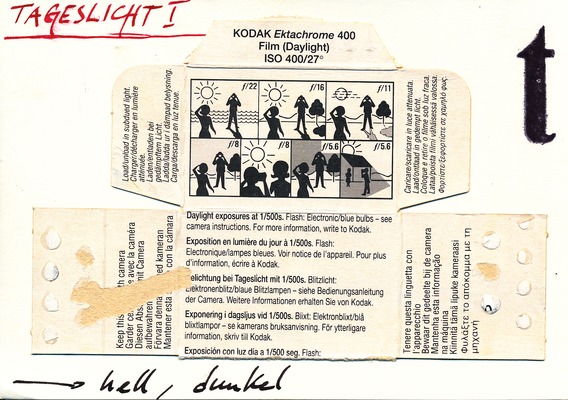 TAGESLICHT I
KODAK Ektachrome 400
Film (Daylight)
ISO 400/27°
t
Load/unload in subdued light.
Charger/décharger en lumière
atténuée.
Laden/entladen bei
gedämpftem Licht.
Ladda/ladda ur i dämpad belysning.
Carga/descarga en luz tenue.
f/22
f/16
f/11
f/8
f/8
f/5.6
f/5.6
Caricare/scaricare in luce attenuata.
Laad/ontlaad in gedempt licht.
Coloque e retire o filme sob luz fraca.
Lataa/poista filmi vähäisessä valossa.
Φορτίστε-ξεφορτίστε σε χαμηλό φως.
Daylight exposures at 1/500s. Flash: Electronic/blue bulbs – see
camera instructions. For more information, write to Kodak.
Exposition en lumière du jour à 1/500s. Flash:
Electronique/lampes bleues. Voir notice de l'appareil. Pour plus
d'information, écrire à Kodak.
elichtung bei Tageslicht mit 1/500s. Blitzlicht:
Elektronenblitz/blaue Blitzlampen – siehe Bedienungsanleitung
der Camera. Weitere Informationen erhalten Sie von Kodak.
Exponering i dagsljus vid 1/500s. Blixt: Elektronblixt/blå
blixtlampor – se kamerans bruksanvisning. För ytterligare
information, skriv till Kodak.
Exposición con luz día a 1/500 seg. Flash:
Keep this camera
Garder ce avec la caméra
Diesen Abs mit Camera
aufbewahren
Förvara denna med kameran
Mantener esta con la cámara
Tenere questa linguetta con
l'apparecchio
Bewaar dit gedeelte bij de camera
Mantenha esta informação
na máquina
Kiinnitä tämä lipuke kameraasi
Φυλάξτε το απόκομμα με τη
μηχανή
→ hell, dunkel